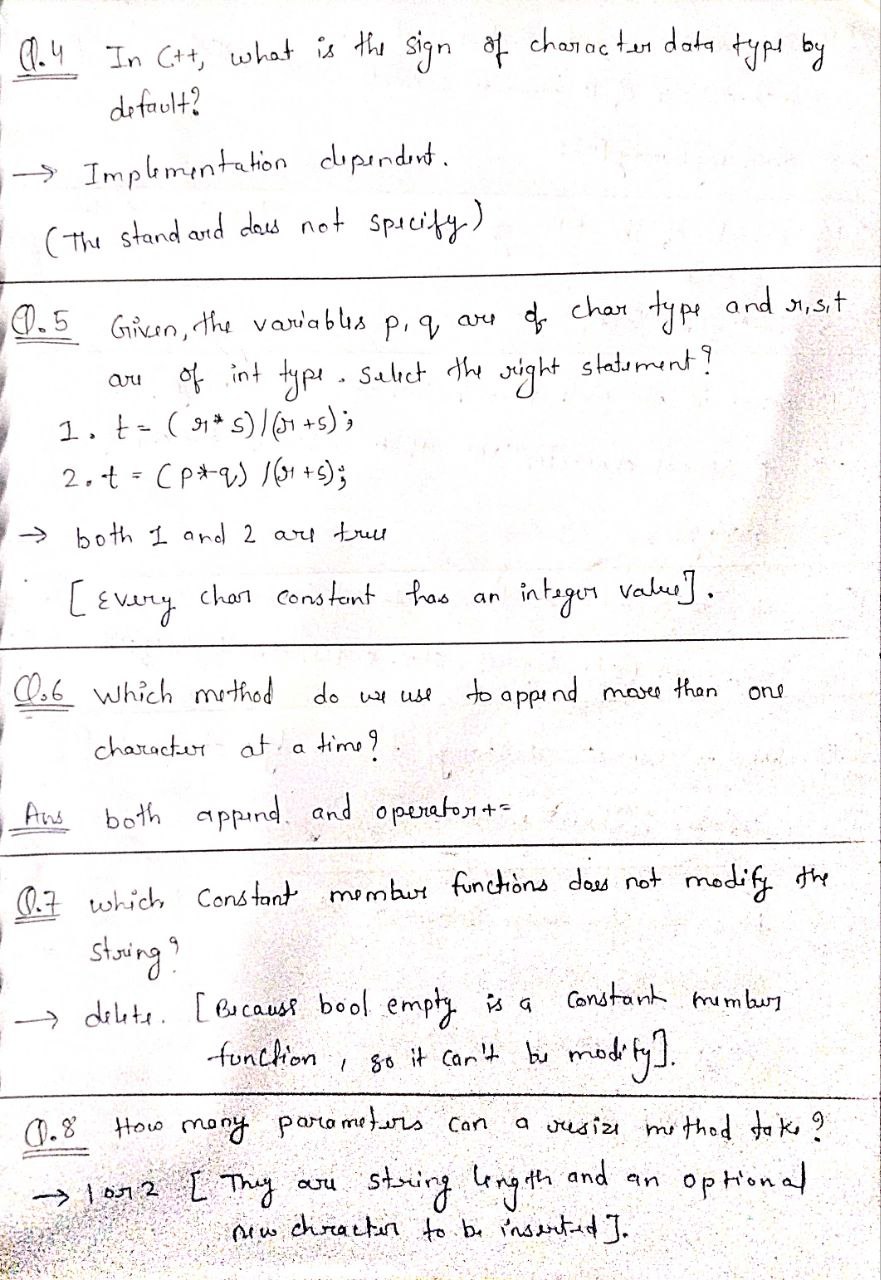 Q.4 In C++, what is the sign of character data type by
default?
→ Implementation dependent.
(The standard does not specify)
Q.5 Given, the variables p, q are of char type and r,s,t
are of int type. Select the right statement?
1. t = (r* s)/(r+s);
2. t = (p*q) /(r+s);
→ both 1 and 2 are true
[Every char constant has an integer value].
Q.6 Which method do we use to append more than one
character at a time?
Ans both append. and operator+=
Q.7 which Constant member functions does not modify the
String?
→ delete. [Because bool empty is a Constant member
function, so it can't be modify].
Q.8 How many parameters can a resize method take?
→ 1 or 2 [They are string length and an optional
new chracter to be inserted].